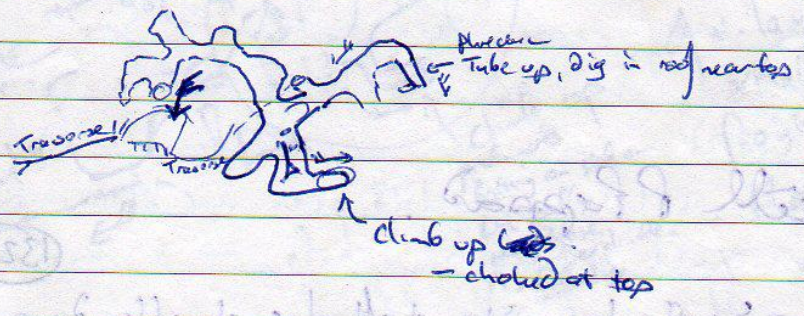 phreatic
Tube up, dig in roof near top
Traverse!
Traverse
climb up
- choked at top